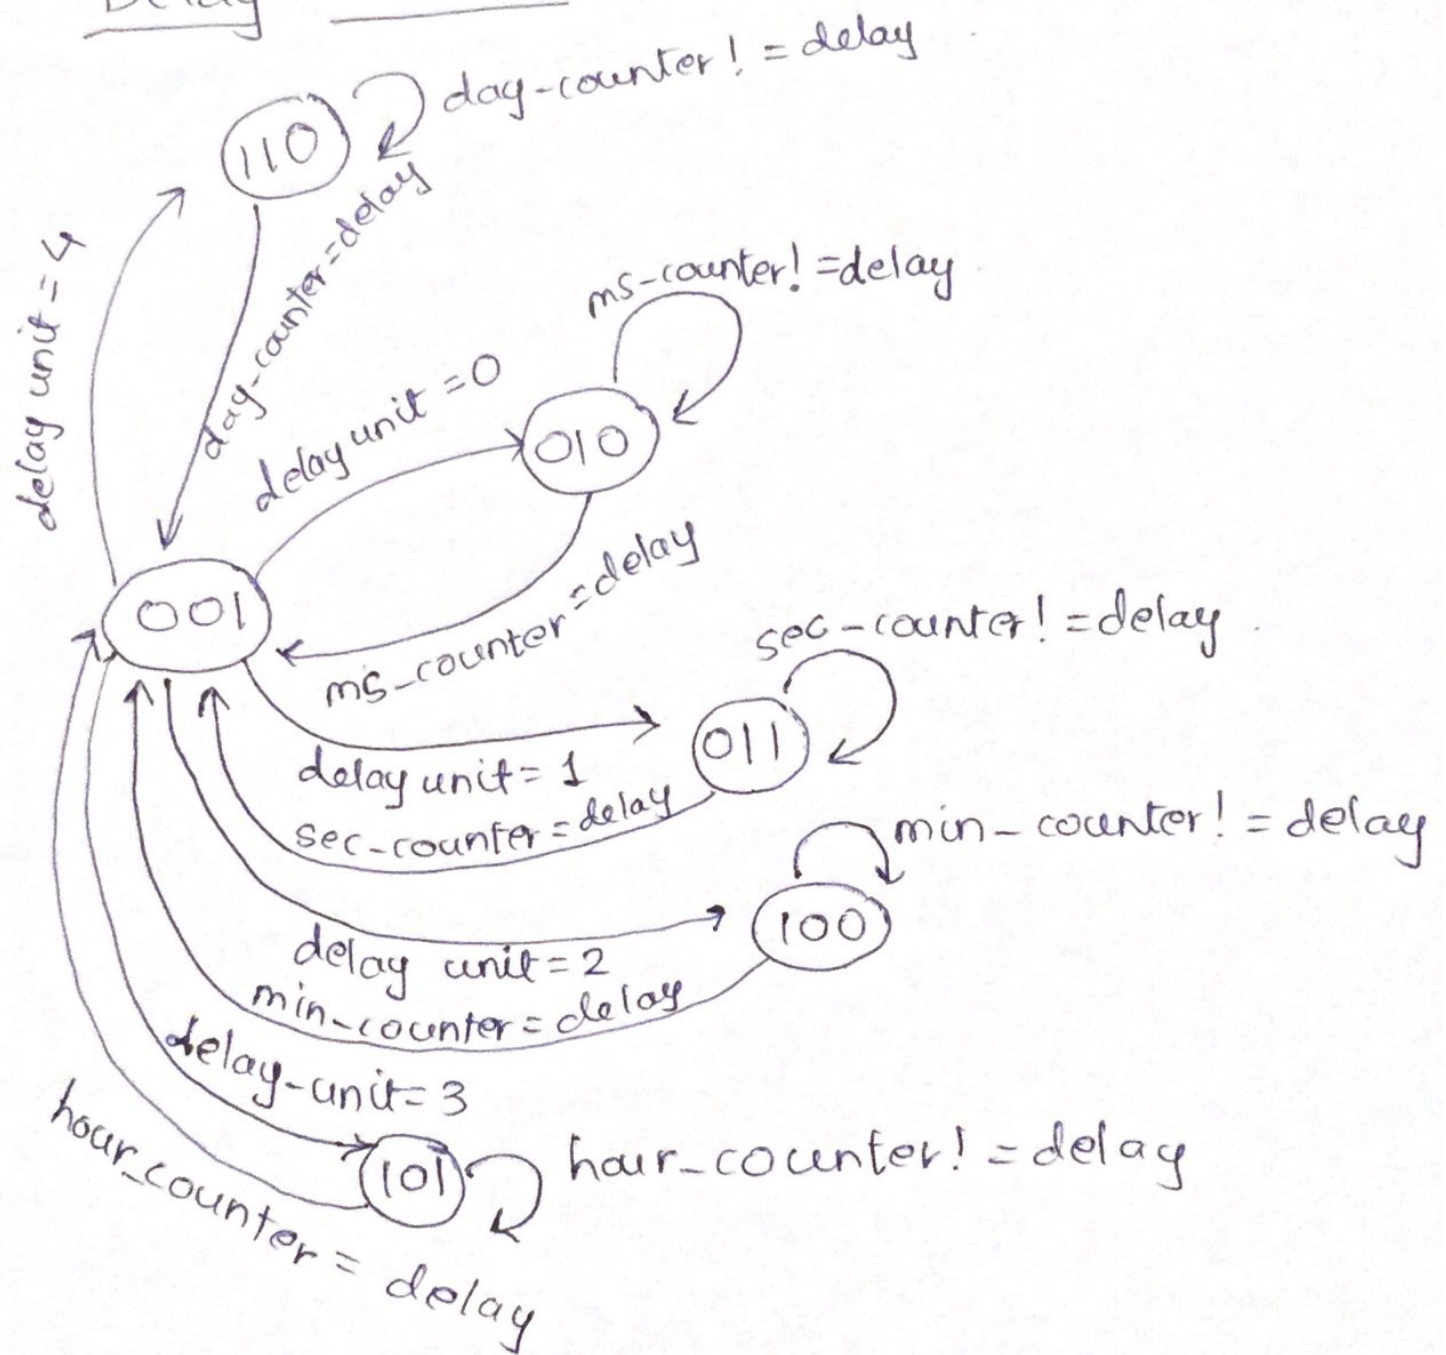 Delay
day-counter! = delay
110
day-counter=delay
delay unit = 4
ms-counter! =delay
delay unit =0
010
ms_counter=delay
001
sec-counter! =delay
011
delay unit= 1
sec-counter=delay
min-counter! = delay
100
delay unit=2
min-counter=delay
delay-unit=3
101
hour_counter! = delay
hour_counter= delay